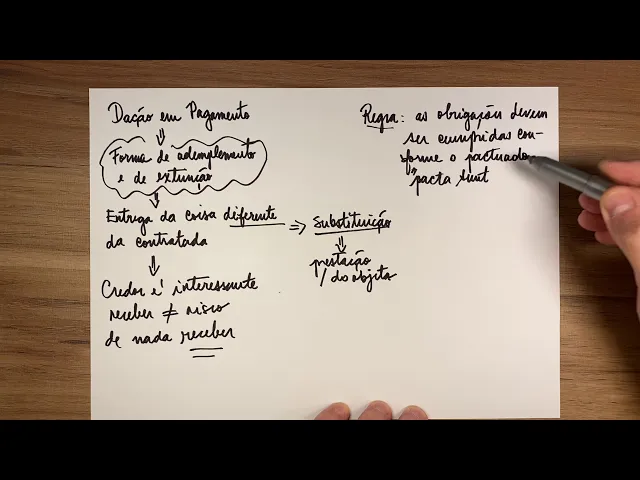 Dação em Pagamento
Forma de adimplemento
e de extinção
Entrega da coisa diferente
da contratada
Credor é interessante
receber ≠ risco
de nada receber
substituição
prestação
/ do objeto
Regra: as obrigações devem
ser cumpridas con-
forme o pactuado
"pacta sunt